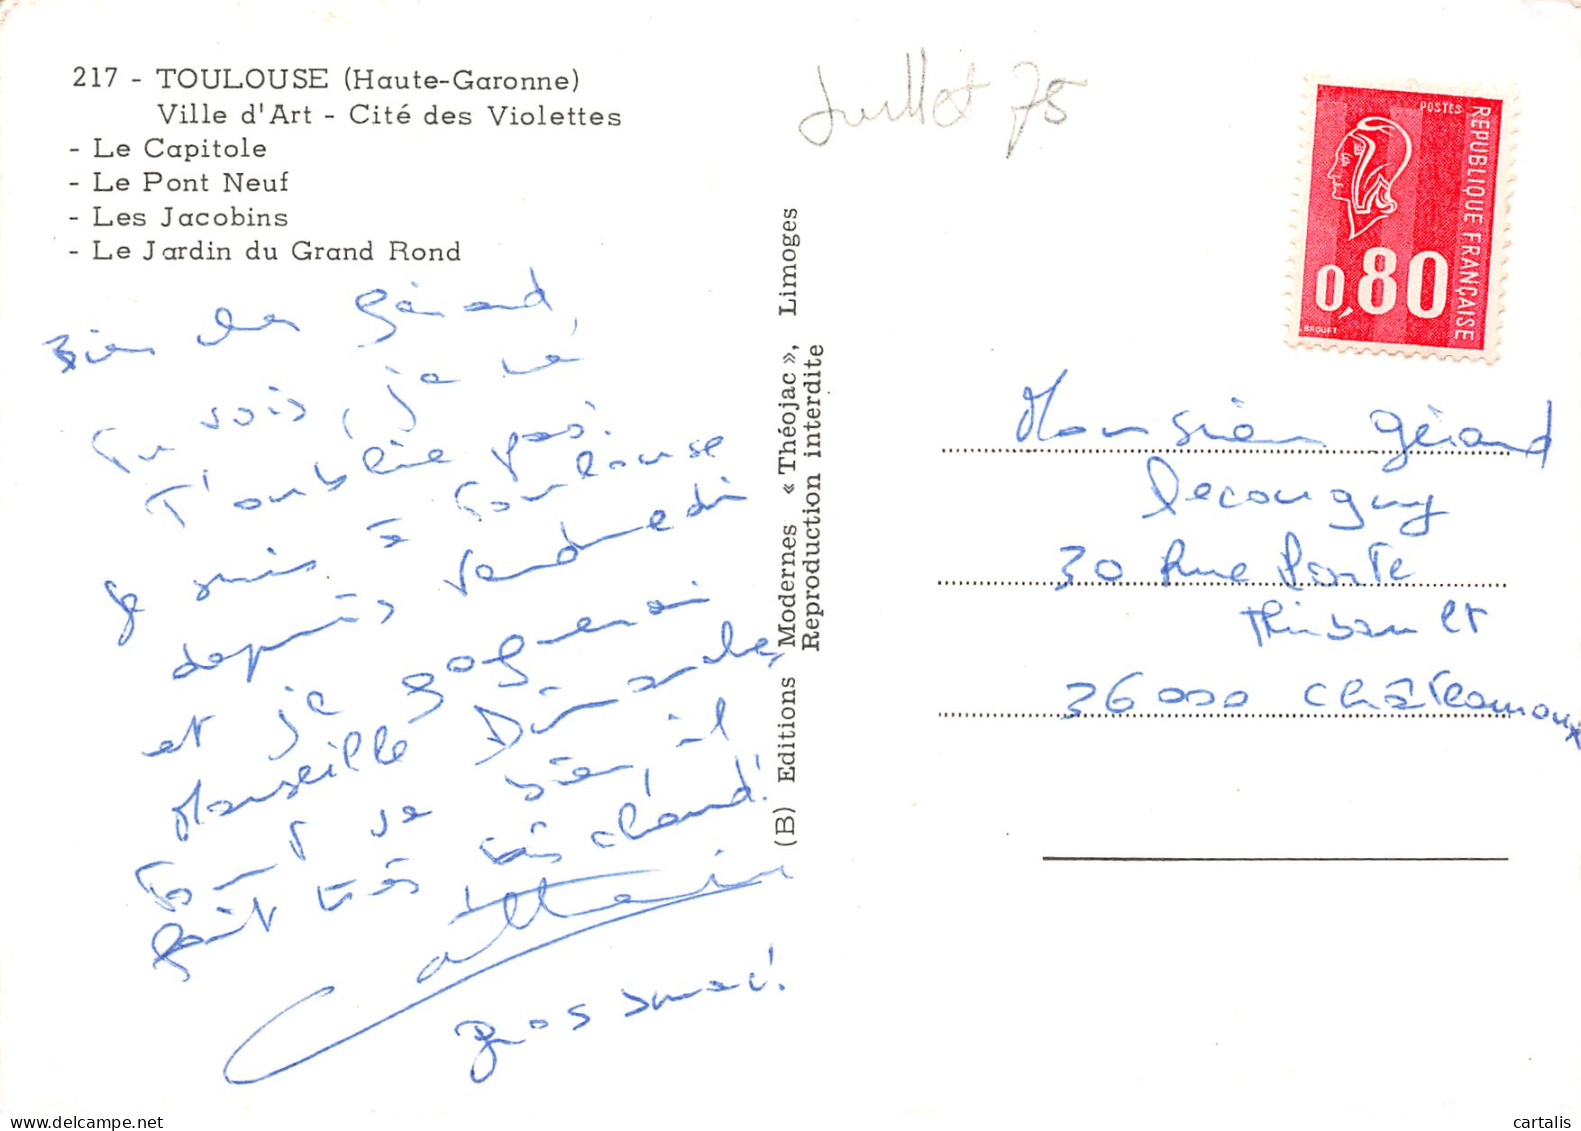 217 - TOULOUSE (Haute-Garonne)
Ville d'Art - Cité des Violettes
- Le Capitole
- Le Pont Neuf
- Les Jacobins
- Le Jardin du Grand Rond
Bien cher Gérard,
Tu vois, je ne
T'oublie pas.
Je suis à Toulouse
depuis vendredi
et je gagnerai
Marseille Dimanche,
Tout va bien, il
fait très très chaud!
Catherine
gros
Juillet 75
(B) Editions Modernes « Théojac », Limoges
Reproduction interdite
POSTES
REPUBLIQUE FRANÇAISE
0,80
BEQUET
Monsieur Gérard
Lecougny
30 Rue Porte
Thibault
36000 Châteauroux
cartalis